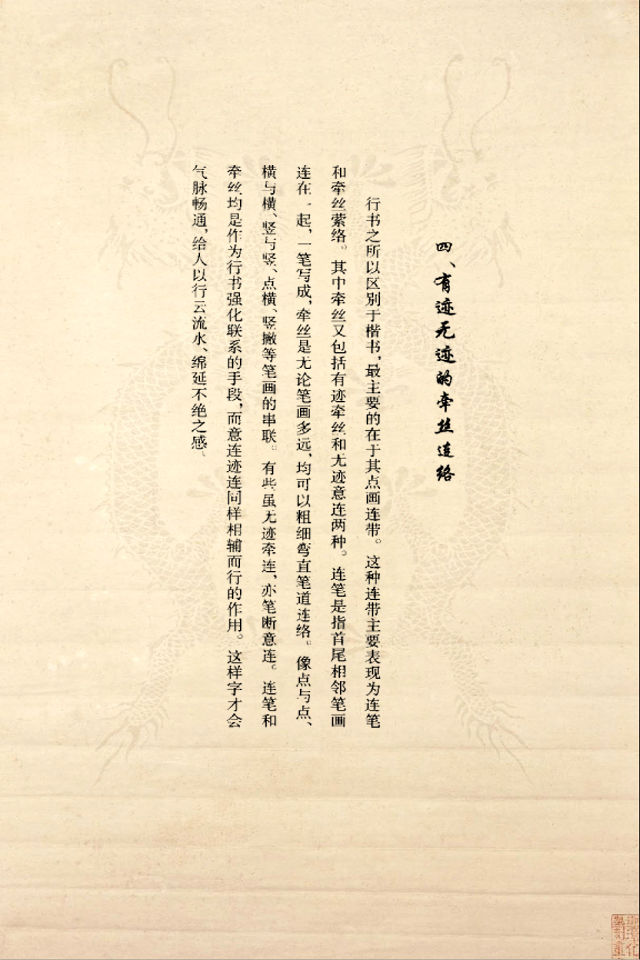 四、有迹无迹的牵丝连络
行书之所以区别于楷书，最主要的在于其点画连带。这种连带主要表现为连笔
和牵丝萦络。其中牵丝又包括有迹牵丝和无迹意连两种。连笔是指首尾相邻笔画
连在一起，一笔写成，牵丝是无论笔画多远，均可以粗细弯直笔道连络。像点与点、
横与横、竖与竖、点横、竖撇等笔画的串联。有些虽无迹牵连，亦笔断意连。连笔和
牵丝均是作为行书强化联系的手段，而意连迹连同样相辅而行的作用。这样字才会
气脉畅通，给人以行云流水、绵延不绝之感。